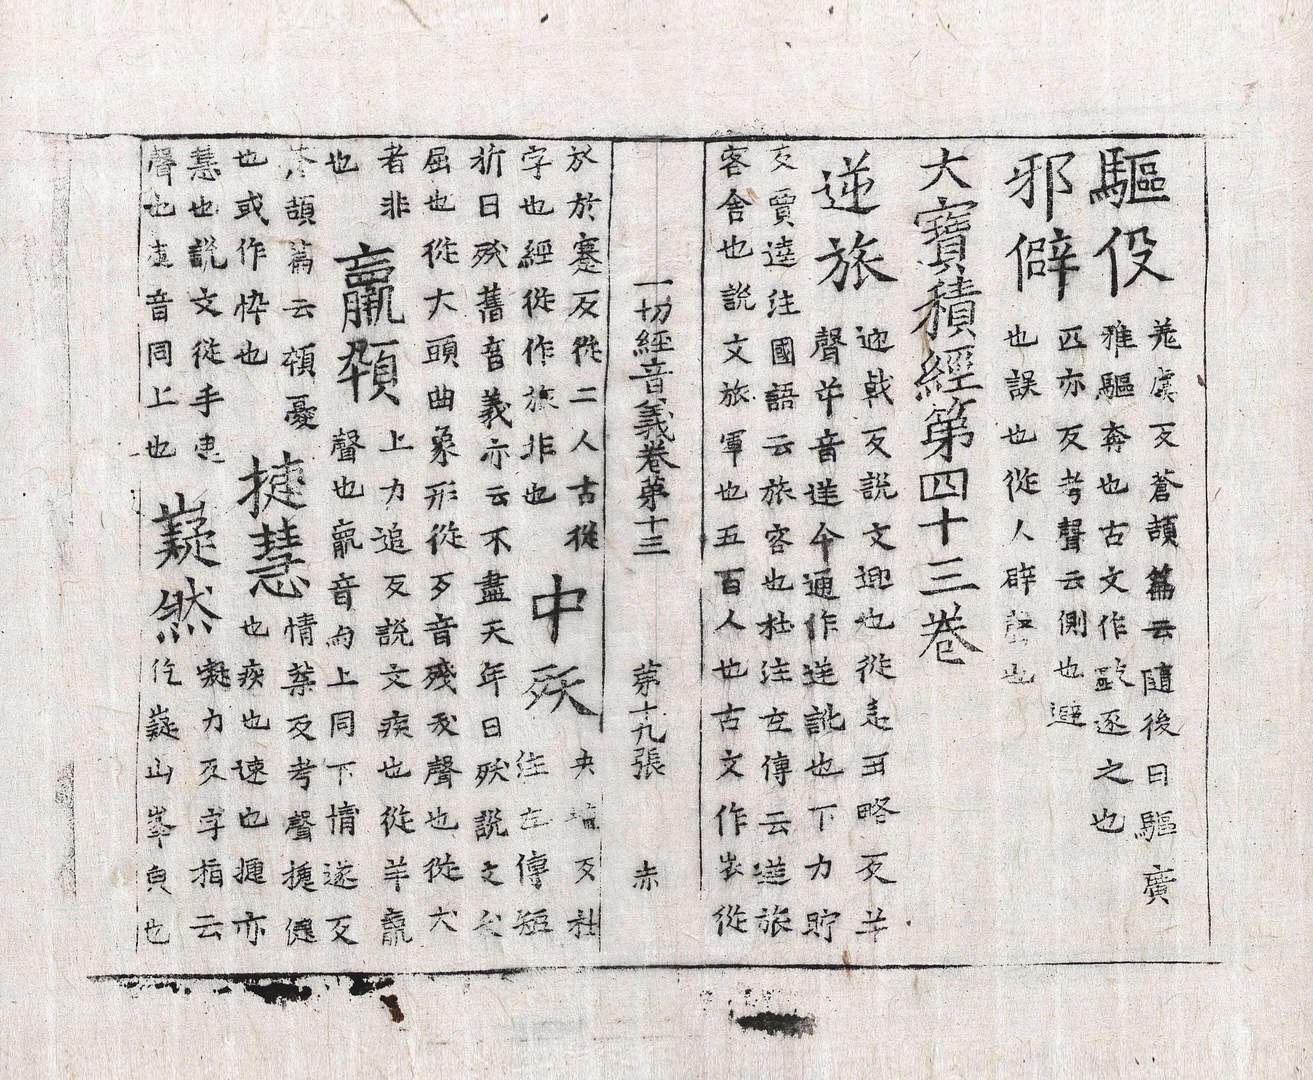 驅役
羌虞反蒼頡篇云隨後曰驅廣
雅驅奔也古文作敺逐之也
邪僻
匹亦反考聲云側也避
也誤也從人辟聲也
大寶積經第四十三卷
逆旅
迎戟反說文迎也從辵屰略反屰
聲屰音逆今通作逆訛也下力貯
反賈逵注國語云旅客也杜注左傳云逆旅
客舍也說文旅軍也五百人也古文作从從
一切經音義卷第十三　第十九張　赤
㫃於蹇反從二人古從
字也經從作旅非也
中殀
夭矯反杜
注左傳短
折曰殀舊音義亦云不盡天年曰殀說文
屈也從大頭曲象形從歹音殘夭聲也從犬
者非
也
羸顇
上力追反說文疾也從羊𣎆
聲也𣎆音同上同下情遂反
蒼頡篇云顇憂
也或作悴也
捷慧
情葉反考聲捷健
也疾也速也捷亦
慧也說文從手疌
聲也疌音同上也
嶷然
凝力反字指云
仡嶷山峯皃也